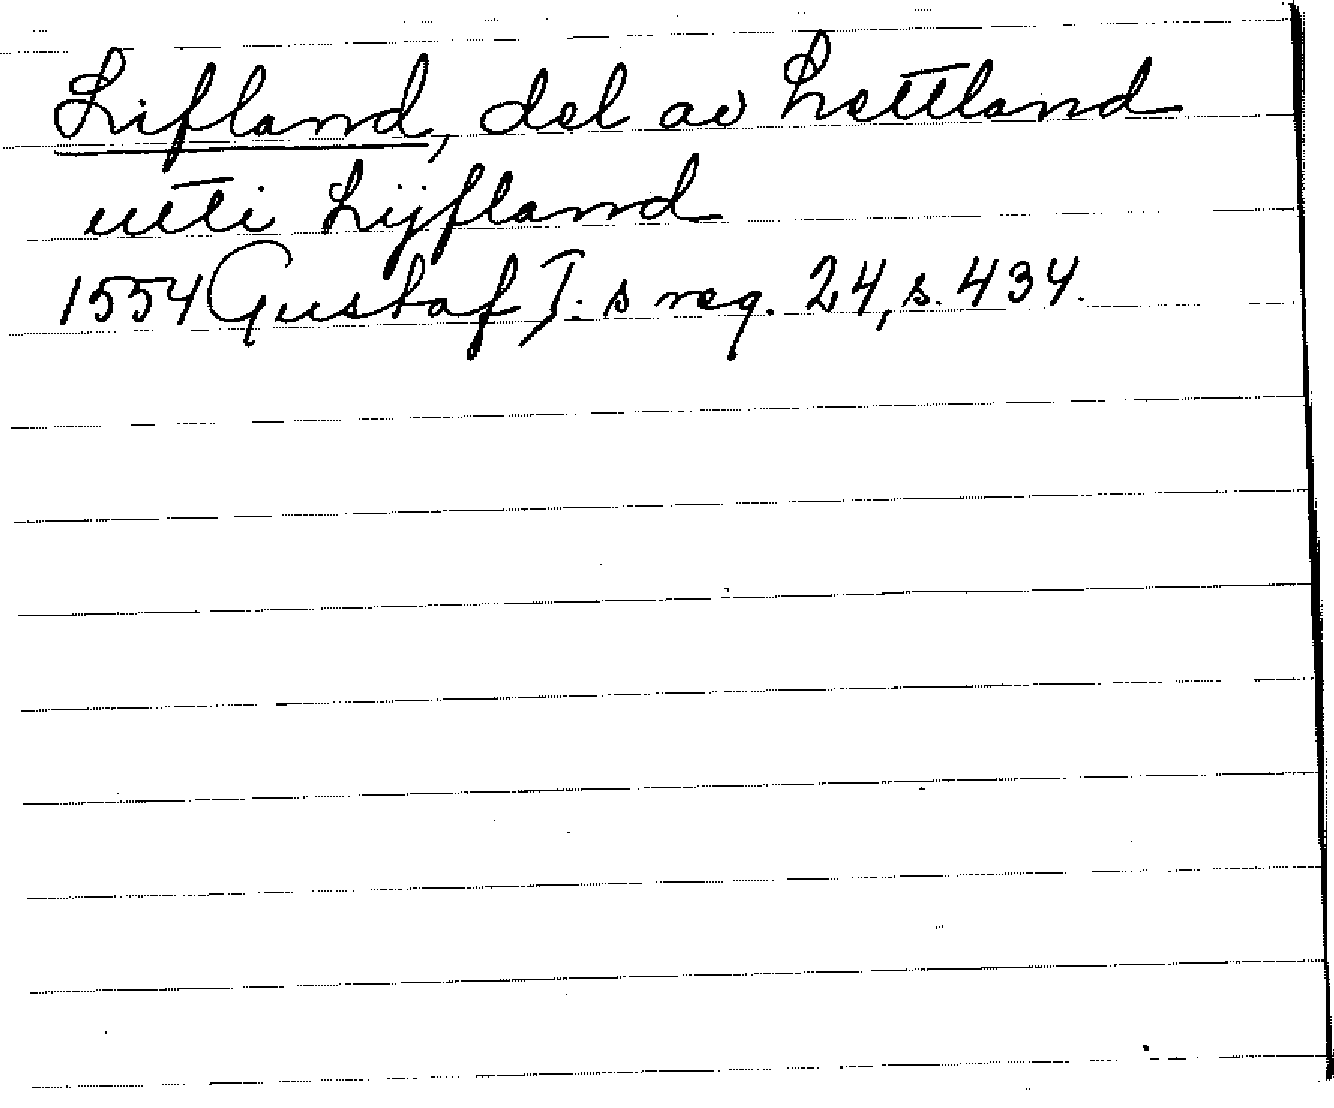 Lifland, del av Lettland
utti Lijfland
1554 Gustaf I:s reg. 24, s. 434.